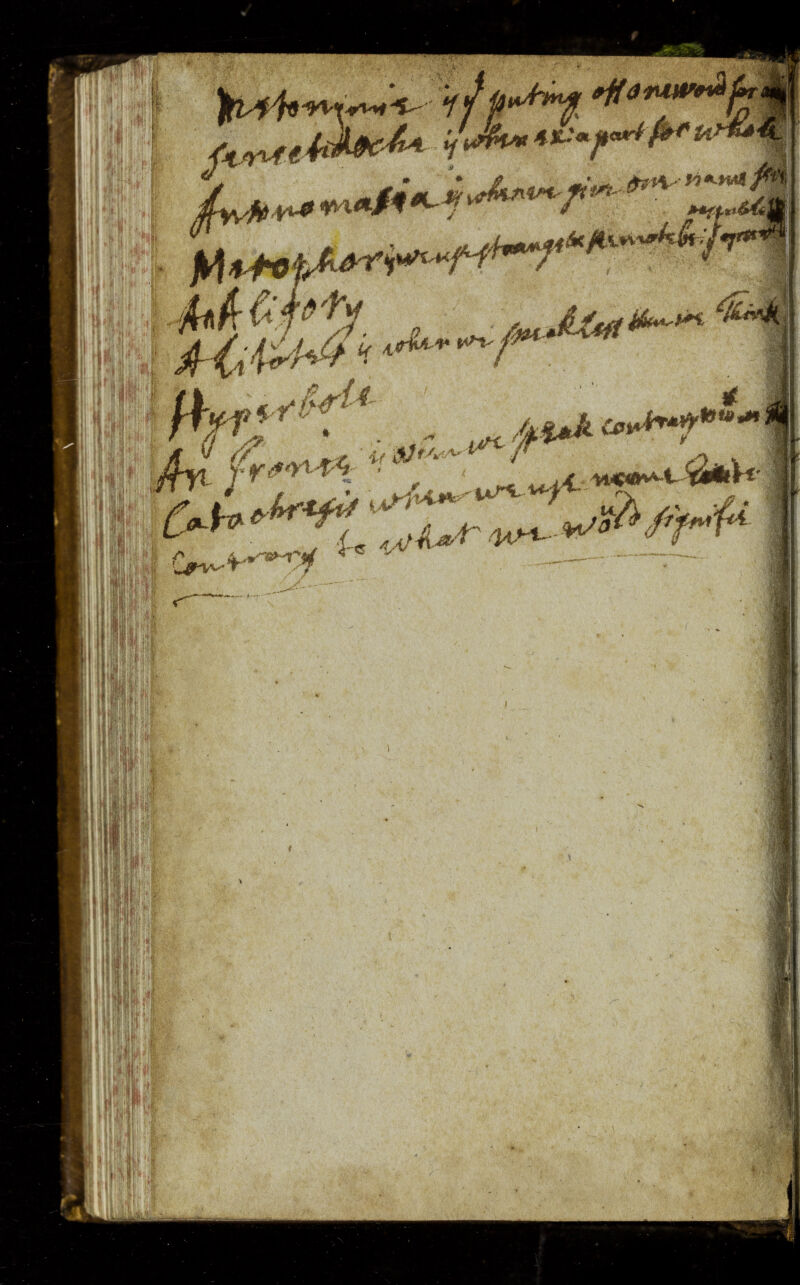 Metonymie is puting off one word for an
Sinechdoche is when is a part for whole
Antonomasia is when we give one name for
Metophor is we use strange & remote
An Aligory
A Litotes is when we speak less then we Think
Hyperbole
An Ironie is when we speak contrary to
Catachresis when we use
Contrary to what we wold signifi